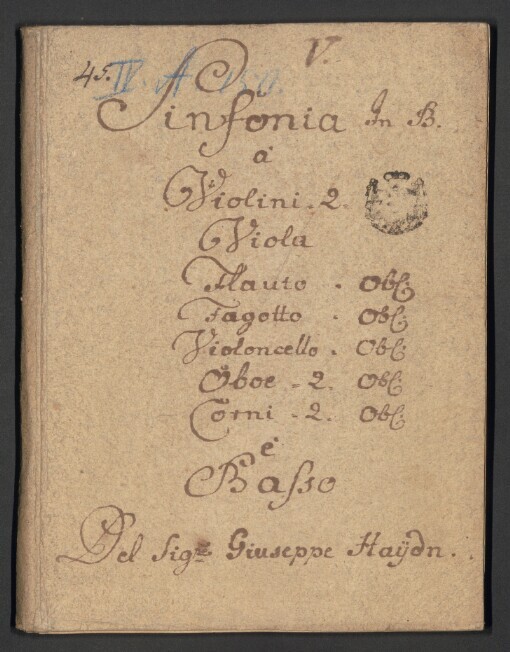 V.
45. IV. A 150.
Sinfonia In B.
â
Violini. 2.
Viola
Flauto . Obl:
Fagotto . Obl:
Violoncello . Obl:
Oboe . 2. Obl:
Corni . 2. Obl:
è
Baſso
Del Sigre Giuseppe Haÿdn.